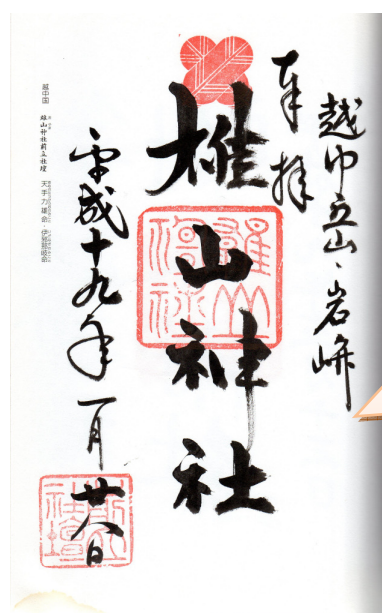 越中立山・岩峅
奉拝
雄山神社
平成十九年一月廿八日
越中国 雄山神社前立社壇 天手力雄命・伊邪那岐命